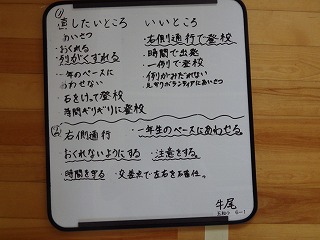 ①
直したいところ　いいところ
・あいさつ　・右側通行で登校
・おくれる　・時間で出発
・列がくずれる　・一例で登校
・一年のペースに　・例がみだれない
あわせない
・石をけって登校
・時間ギリギリに登校
②・右側通行　・一年生のペースにあわせる
・おくれないようにする　・注意をする
・時間を守る　・交差点で左右をお確認。
牛尾
6-1